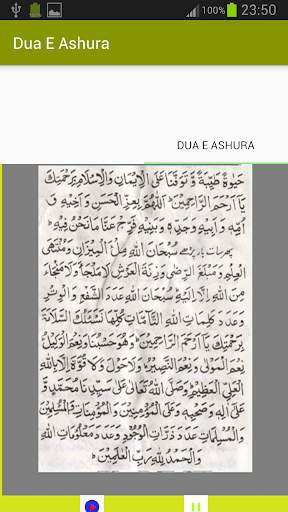 100% 23:50
Dua E Ashura
DUA E ASHURA
حَيٰوةً طَيِّبَةً وَّتَوَفَّنَا عَلَى الْاِيْمَانِ وَالْاِسْلَامِ بِرَحْمَتِكَ
يَا اَرْحَمَ الرَّاحِمِيْنَ اَللّٰهُمَّ بِعِزِّ الْحَسَنِ وَاَخِيْهِ وَ
اُمِّهٖ وَاَبِيْهِ وَجَدِّهٖ وَبَنِيْهِ فَرِّجْ عَنَّا مَا نَحْنُ فِيْهِ
پھر سات بار پڑھے سُبْحَانَ اللّٰهِ مِلْءَ الْمِيْزَانِ وَمُنْتَهَى
الْعِلْمِ وَمَبْلَغَ الرِّضٰى وَزِنَةَ الْعَرْشِ لَا مَلْجَاَ وَلَا مَنْجَاَ
مِنَ اللّٰهِ اِلَّا اِلَيْهِ سُبْحَانَ اللّٰهِ عَدَدَ الشَّفْعِ وَالْوِتْرِ
وَعَدَدَ كَلِمَاتِ اللّٰهِ التَّآمَّاتِ كُلِّهَا نَسْئَلُكَ السَّلَامَةَ
بِرَحْمَتِكَ يَا اَرْحَمَ الرَّاحِمِيْنَ وَهُوَ حَسْبُنَا وَنِعْمَ الْوَكِيْلُ
نِعْمَ الْمَوْلٰى وَنِعْمَ النَّصِيْرُ وَلَا حَوْلَ وَلَا قُوَّةَ اِلَّا بِاللّٰهِ
الْعَلِيِّ الْعَظِيْمِ وَصَلَّى اللّٰهُ تَعَالٰى عَلٰى سَيِّدِنَا مُحَمَّدٍ وَّ
عَلٰى اٰلِهٖ وَصَحْبِهٖ وَعَلَى الْمُؤْمِنِيْنَ وَالْمُؤْمِنَاتِ وَالْمُسْلِمِيْنَ
وَالْمُسْلِمَاتِ عَدَدَ ذَرَّاتِ الْوُجُوْدِ وَعَدَدَ مَعْلُوْمَاتِ اللّٰهِ
وَالْحَمْدُ لِلّٰهِ رَبِّ الْعٰلَمِيْنَ